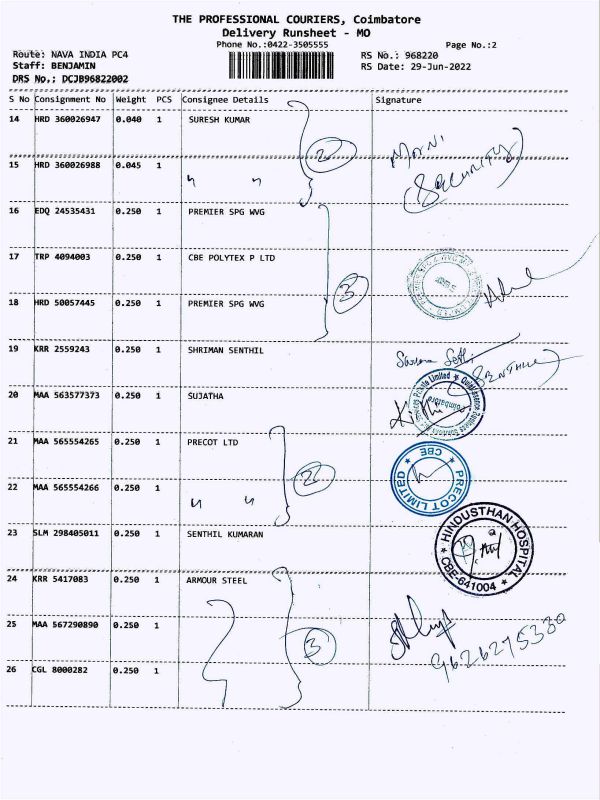 THE PROFESSIONAL COURIERS, Coimbatore
Delivery Runsheet - MO
Phone No.:0422-3505555
Page No.:2
Route: NAVA INDIA PC4
RS No.: 968220
Staff: BENJAMIN
RS Date: 29-Jun-2022
DRS No.: DCJB96822002
S No Consignment No Weight PCS Consignee Details Signature
14 HRD 360026947 0.040 1 SURESH KUMAR
2
MOANI
15 HRD 360026988 0.045 1 " "
(SECURITY)
16 EDQ 24535431 0.250 1 PREMIER SPG WVG
17 TRP 4094003 0.250 1 CBE POLYTEX P LTD
3
18 HRD 50057445 0.250 1 PREMIER SPG WVG
19 KRR 2559243 0.250 1 SHRIMAN SENTHIL
SENTHIL
20 MAA 563577373 0.250 1 SUJATHA
21 MAA 565554265 0.250 1 PRECOT LTD
2
PRECOT LIMITED
CBE
22 MAA 565554266 0.250 1 " "
23 SLM 298405011 0.250 1 SENTHIL KUMARAN
HINDUSTHAN HOSPITAL
CBE-641004
24 KRR 5417083 0.250 1 ARMOUR STEEL
25 MAA 567290890 0.250 1
3
9626275330
26 CGL 8000282 0.250 1